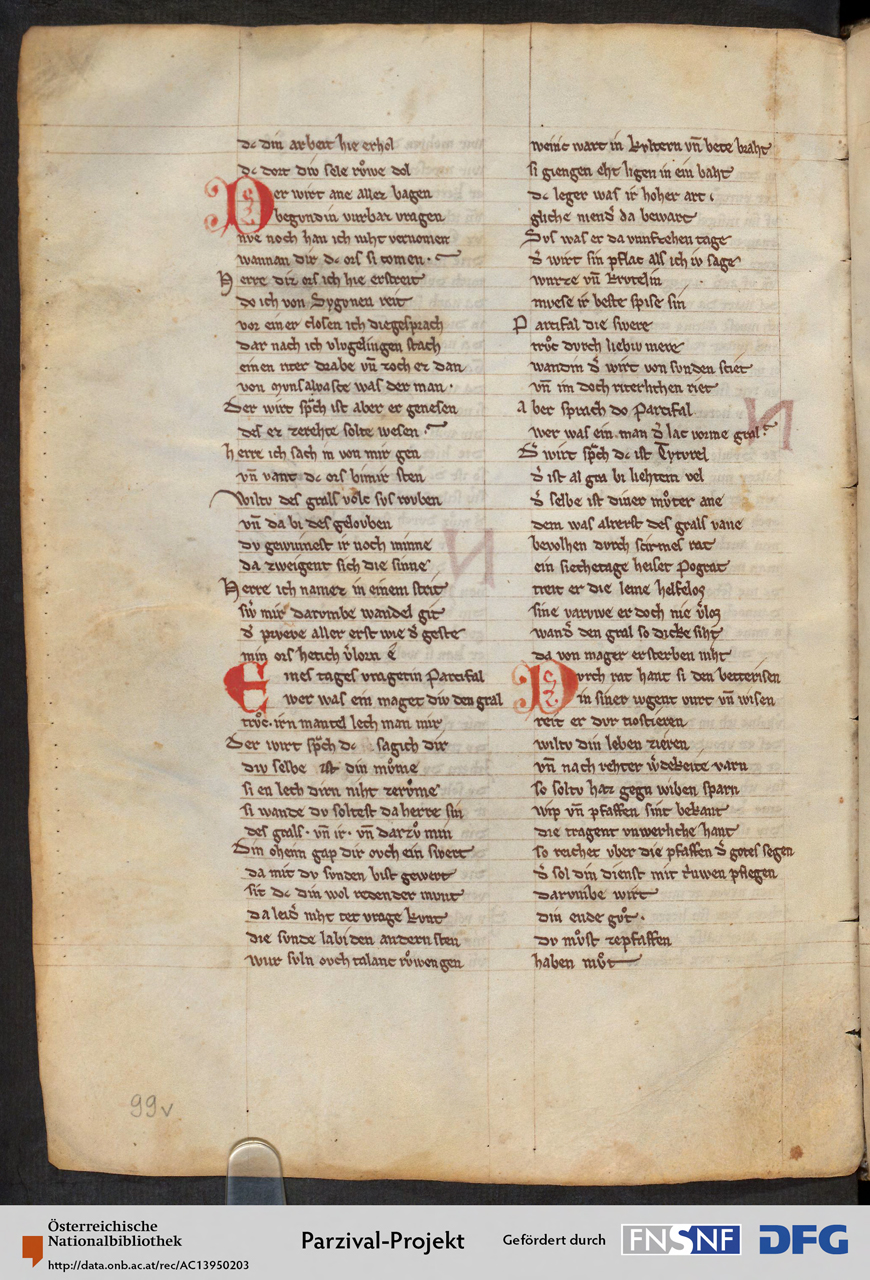 dc din arbeit hie erhol
dc dort div sele růwe dol
Der wirt ane allez bagen
begundin vurbaz vragen
nve noch han ich niht vernomen
wannan dir dc ors si comen.
Herre diz ors ich hie erstreit
do ich von Sygvnen reit
vor einer closen ich die gesprach
dar nach ich vlvgelingen stach
einen riter drabe vn̄ zoch er dan
von mvnsalvasce was der man.
Der wirt sp̄ch ist aber er genesen
des er zerehte solte wesen.
herre ich sach in von mir gen
vn̄ vant dc ors bi mir sten
Wiltv des grals volc svs rovben
vn̄ da bi des gelovben
dv gewinnest ir noch minne
da zweigent sich die sinne
Herre ich namez in einem strit
sw̓ mir darvmbe wandel git
d̓ prveve aller erst wie d̓ geste
min ors hetich v̓lorn e
Eines tages vragetin Parcifal
wer was ein maget div den gral
trůc. irn mantel lech man mir
Der wirt sp̄ch dc sagich dir
div selbe ist din můme
si en lech dirn niht zerůme
si wande dv soltest da herre sin
des grals. vn̄ ir. vn̄ darzů min
Din oheim gap dir ovch ein swert
da mit dv svnden bist gewert
sit dc din wol redender mvnt
da leid̓ niht tet vrage kvnt
die svnde la bi den andern sten
wir svln ovch talanc růwen gen
weinic wart in kvltern vn̄ bete braht
si giengen eht ligen in ein baht
dc leger was ir hoher art
gliche niend̓ da bewart
Svs was er da vunfzehen tage
d̓ wirt sin pflac als ich iv sage
wurze vn̄ krvtelin
mvese ir beste spise sin
Parcifal die swere
trůc dvrch liebiv mere
wandin d̓ wirt von svnden sciet
vn̄ im doch riterlichen riet
Aber sprach do Parcifal
wer was ein man d̓ lac vorme gral
D̓ wirt sp̄ch dc ist Tytvrel
d̓ ist al gra bi liehtem vel
d̓ selbe ist diner můter ane
dem was alrerst des grals vane
bevolhen dvrch scirmes rat
ein siechetage heiset Pograt
treit er die leme helfeloz
sine varwe er doch nie v̓loz
wand̓ den gral so dicke siht
da von mager ersterben niht
Dvrch rat hant si den betterisen
in siner ivgent vurt vn̄ wisen
reit er dvr tiostieren
wiltv din leben zieren
vn̄ nach rehter w̓dekeite varn
so soltv haz gegn wiben sparn
wip vn̄ pfaffen sint bekant
die tragent vnwerliche hant
so reichet vber die pfaffen d̓ gotes segen
d̓ sol din dienst mit triwen pflegen
darvmbe wirt
din ende gůt.
dv můst zepfaffen
haben můt
99v
Österreichische
Nationalbibliothek
http://data.onb.ac.at/rec/AC13950203
Parzival-Projekt
Gefördert durch
FNSNF
DFG